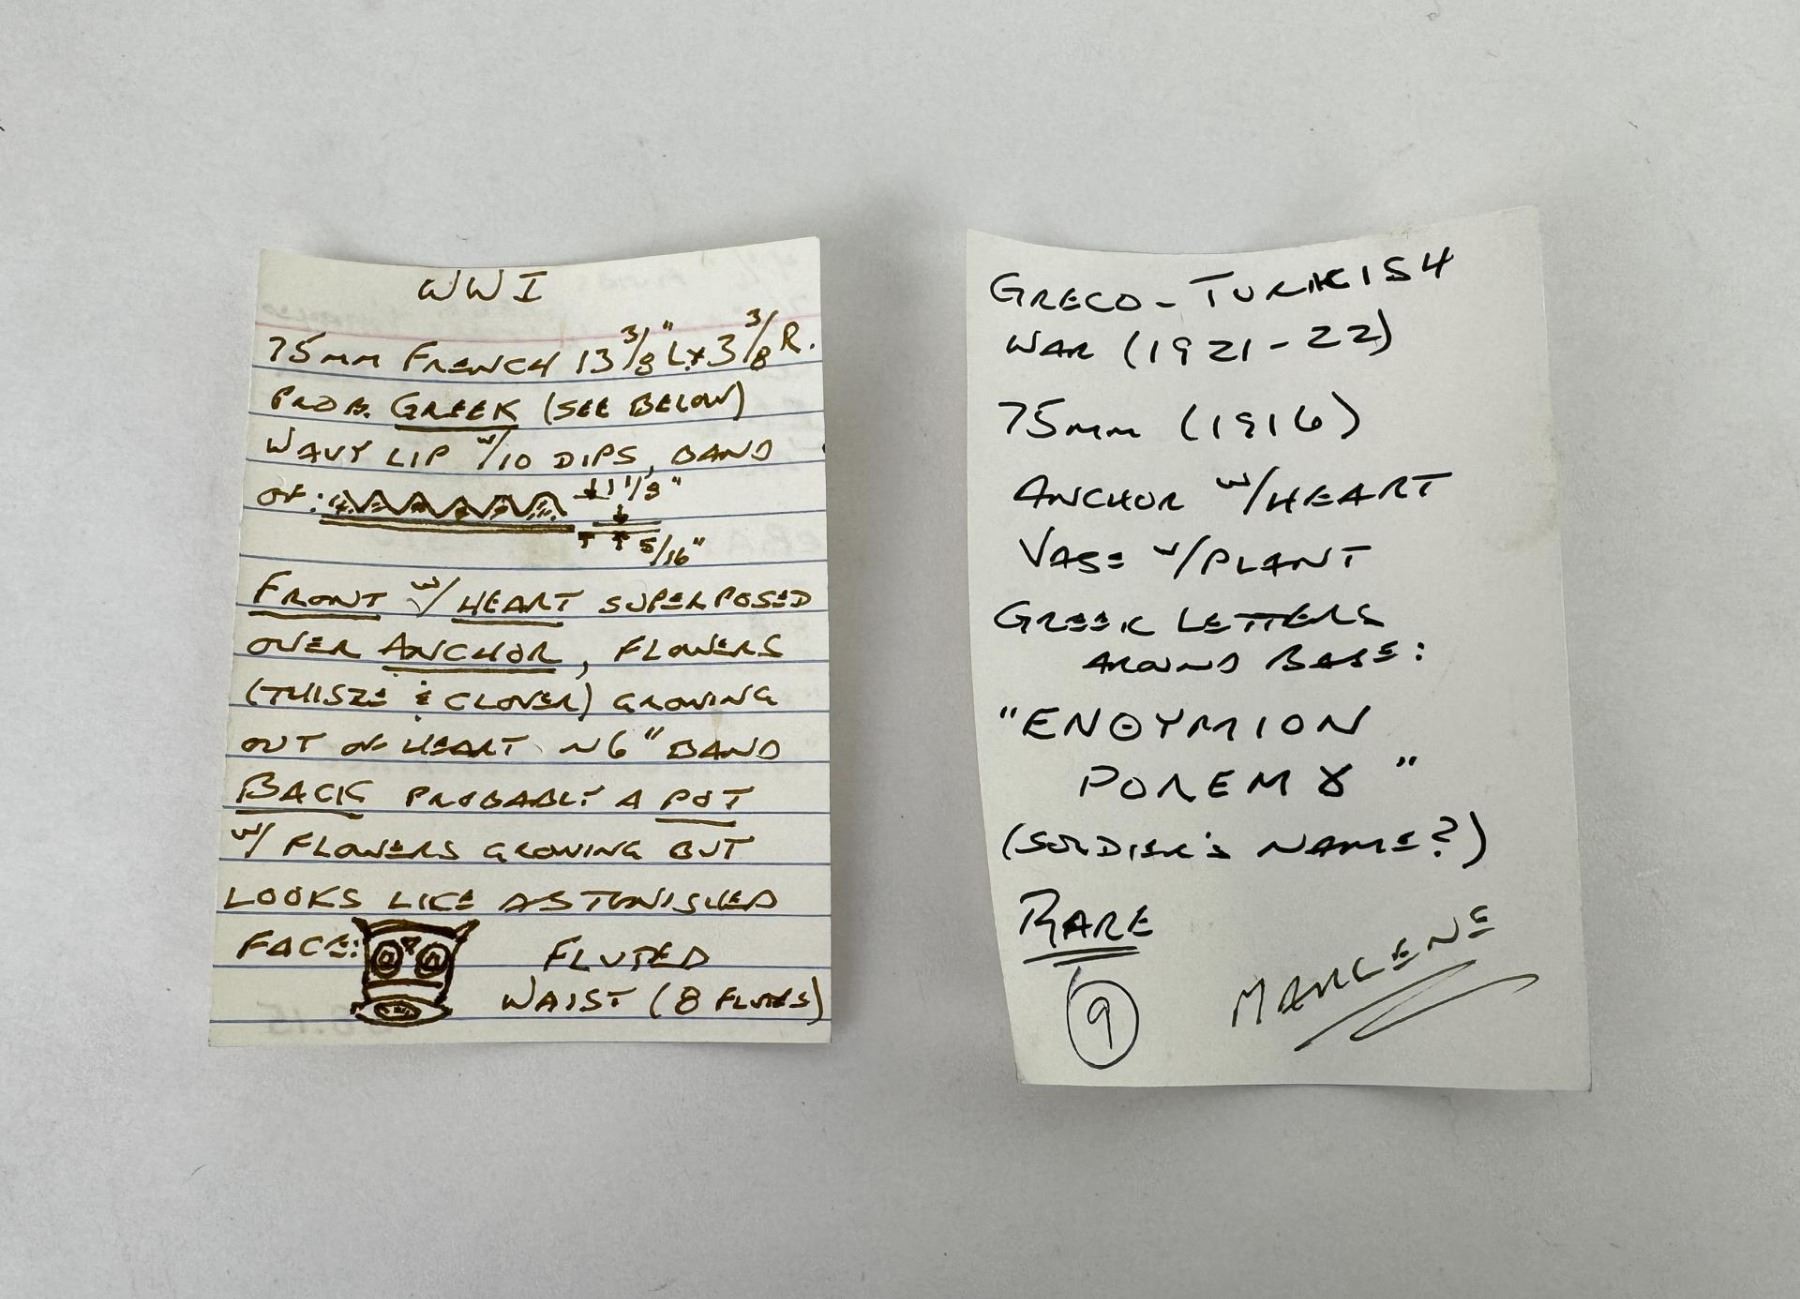 WWI
75mm FRENCH 13 3/8" L x 3 3/8 R.
PROB. GREEK (SEE BELOW)
WAVY LIP w/10 DIPS, BAND
OF: 1 1/8"
5/16"
FRONT w/ HEART SUPERPOSED
OVER ANCHOR, FLOWERS
(THISZE & CLOVER) GROWING
OUT OF HEART ~6" BAND
BACK PROBABLY A POT
w/ FLOWERS GROWING BUT
LOOKS LIKE ASTONISHED
FACE: FLUTED
WAIST (8 FLUTES)
GRECO-TURKISH
WAR (1921-22)
75mm (1916)
ANCHOR w/HEART
VASE w/PLANT
GREEK LETTERS
AROUND BASE:
"ENΘYMION
POΛEMȢ"
(SOLDIER'S NAME?)
RARE
9
MARLENE